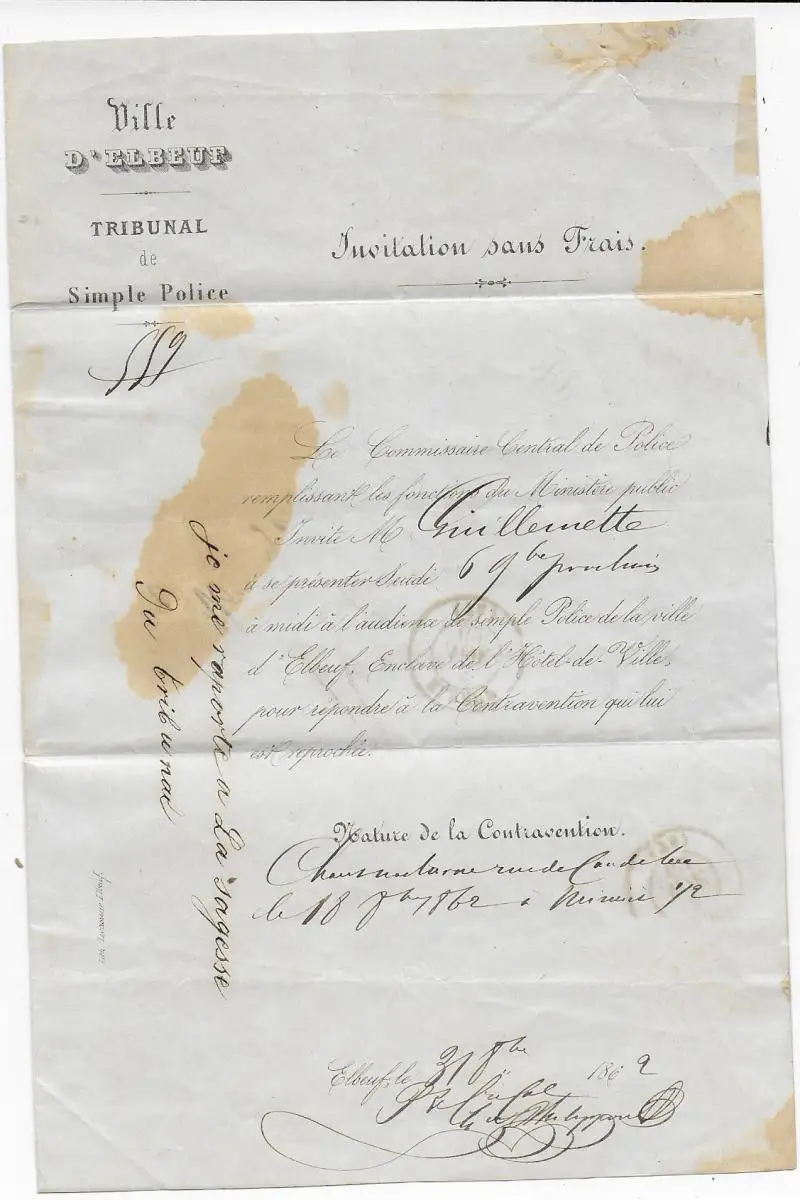 Ville
D'ELBEUF
TRIBUNAL
de
Simple Police
Invitation sans Frais.
559
Le Commissaire Central de Police
remplissant les fonctions du Ministère public
Invite M Guillemette
à se présenter Jeudi 6 9bre prochain
à midi à l'audience de simple Police de la ville
d'Elbeuf, Enclave de l'Hôtel-de-Ville,
pour répondre à la Contravention qui lui
est reprochée.
Nature de la Contravention.
rue de Caudebec
le 18 8bre 1862 à minuit 1/2
Elbeuf, le 31 8bre 1862
je me raporte a La sagesse
Du tribunal